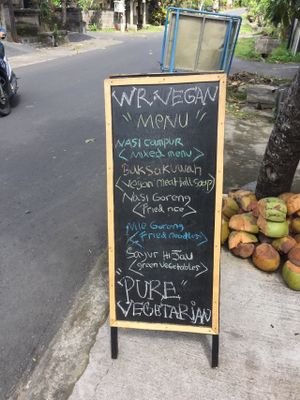 WR.VEGAN
"MENU"
NASI CAMPUR
<Mixed menu>
BakSakuwah
<Vegan meatball soup>
Nasi Gorang
<Fried rice>
Mie Gorang
<Fried noodles>
Sayur Hijau
<green vegetables>
"PURE"
VEGETARIAN